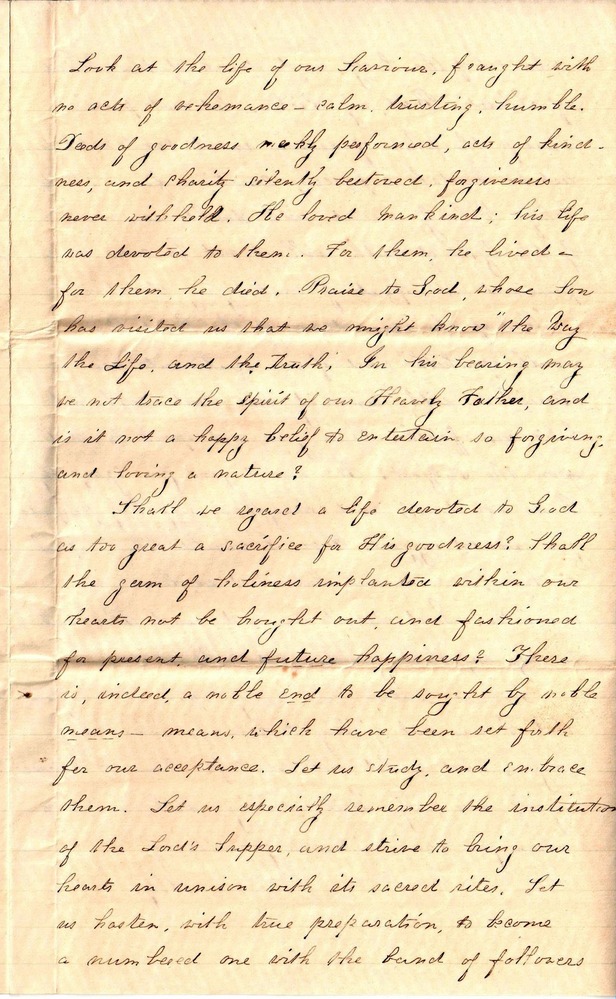 Look at the life of our Saviour, fraught with
no acts of vehemance – calm, trusting, humble.
Deeds of goodness meekly performed, acts of kind-
ness, and charity silently bestowed, forgiveness
never withheld. He loved mankind; his life
was devoted to them. For them, he lived –
for them he died. Praise to God, whose Son
has visited us that we might know "the Way
the Life, and the Truth." In his bearing may
we not trace the spirit of our Heavenly Father, and
is it not a happy belief to entertain so forgiving,
and loving a nature?
Shall we regard a life devoted to God
as too great a sacrifice for His goodness? Shall
the germ of holiness implanted within our
hearts not be brought out, and fashioned
for present, and future happiness? There
is, indeed, a noble end to be sought by noble
means – means, which have been set forth
for our acceptance. Let us study, and embrace
them. Let us especially remember the institution
of the Lord's Supper, and strive to bring our
hearts in unison with its sacred rites. Let
us hasten, with true preparation, to become
a numbered one with the band of followers